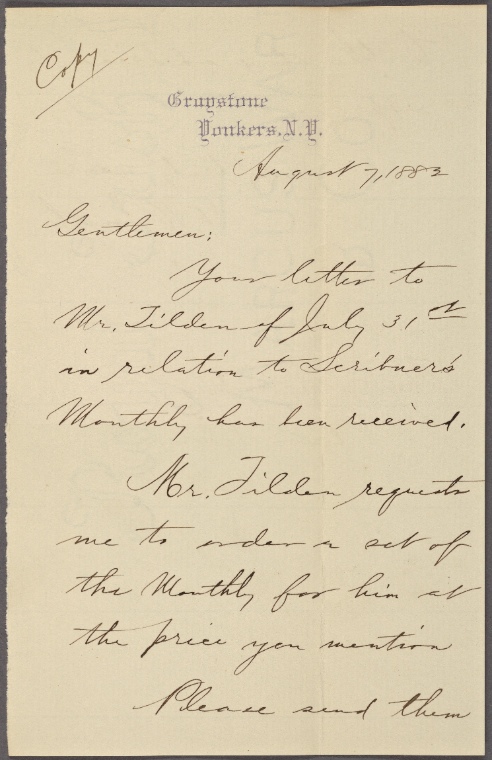 Copy
Graystone
Yonkers, N.Y.
August 7, 1882
Gentlemen:
Your letter to
Mr. Tilden of July 31st
in relation to Scribner's
Monthly has been received.
Mr. Tilden requests
me to order a set of
the Monthly for him at
the price you mention
Please send them